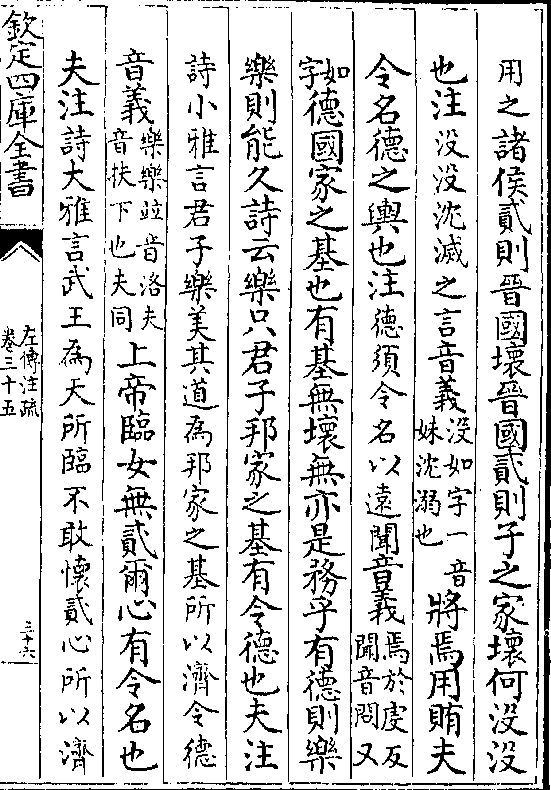 用之諸侯貳則晉國壞晉國貳則子之家壞何没没
也注没没沈滅之言音義没如字一音妹沈溺也將焉用賄夫
令名德之輿也注德須令名以遠聞音義焉於虔反聞音問又
如字德國家之基也有基無壞無亦是務乎有德則樂
樂則能久詩云樂只君子邦家之基有令德也夫注
詩小雅言君子樂美其道為邦家之基所以濟令德
音義樂樂竝音洛夫音扶下也夫同上帝臨女無貳爾心有令名也
夫注詩大雅言武王為天所臨不敢懷貳心所以濟
欽定四庫全書
左傳注疏
卷三十五
三十六